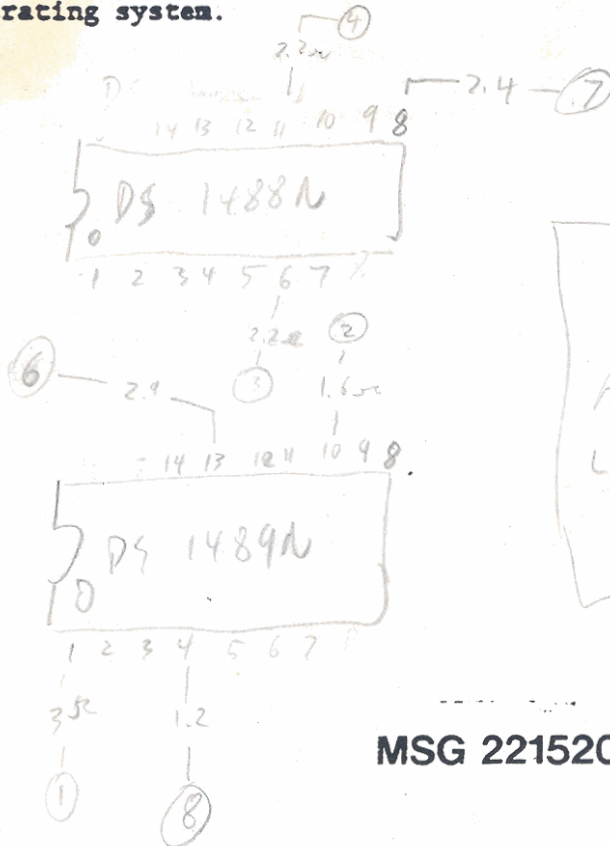 rating system.
4
2.2Ω
2.4 7
14 13 12 11 10 9 8
DS 1488N
1 2 3 4 5 6 7
2.2Ω 2
6 2.9 3 1.6Ω
14 13 12 11 10 9 8
DS 1489N
1 2 3 4 5 6 7
3Ω 1.2
MSG 221520
1 8